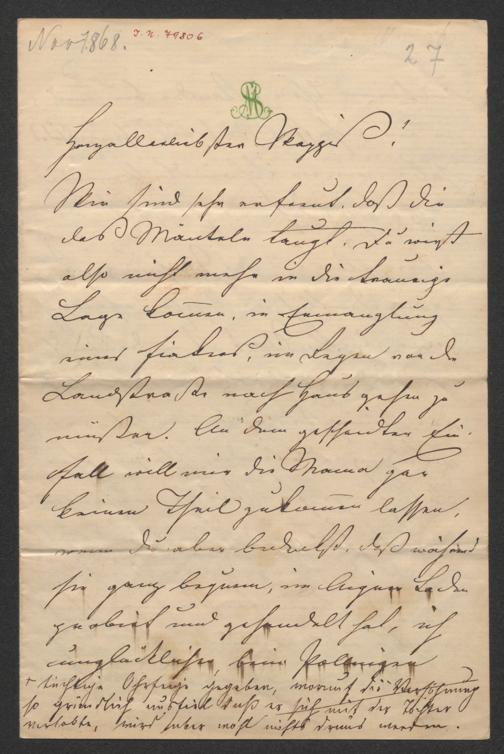 Nov 1868.
I.N. 79806
27
Herzallerliebster !
Wir sind sehr erfreut, daß dir
das Mänteln taugt. Du wirst
also nicht mehr in die traurige
Lage kommen, in Ermanglung
eines Fiakers, im Regen von der
Landstraße nach Haus gehen zu
müßen. An dem gescheidten Ein-
fall will mir die Mama gar
keinen Theil zukommen lassen,
wenn du aber bedenkst, daß während
sie ganz bequem, im Laden
probirt und gehandelt hat, ich
unglücklicher, beim
+ tüchtige Ohrfeige gegeben, worauf die Versöhnung
so gründlich ausfiel daß er sich mit der Tochter
verlobte, wird aber wohl nichts draus werden.